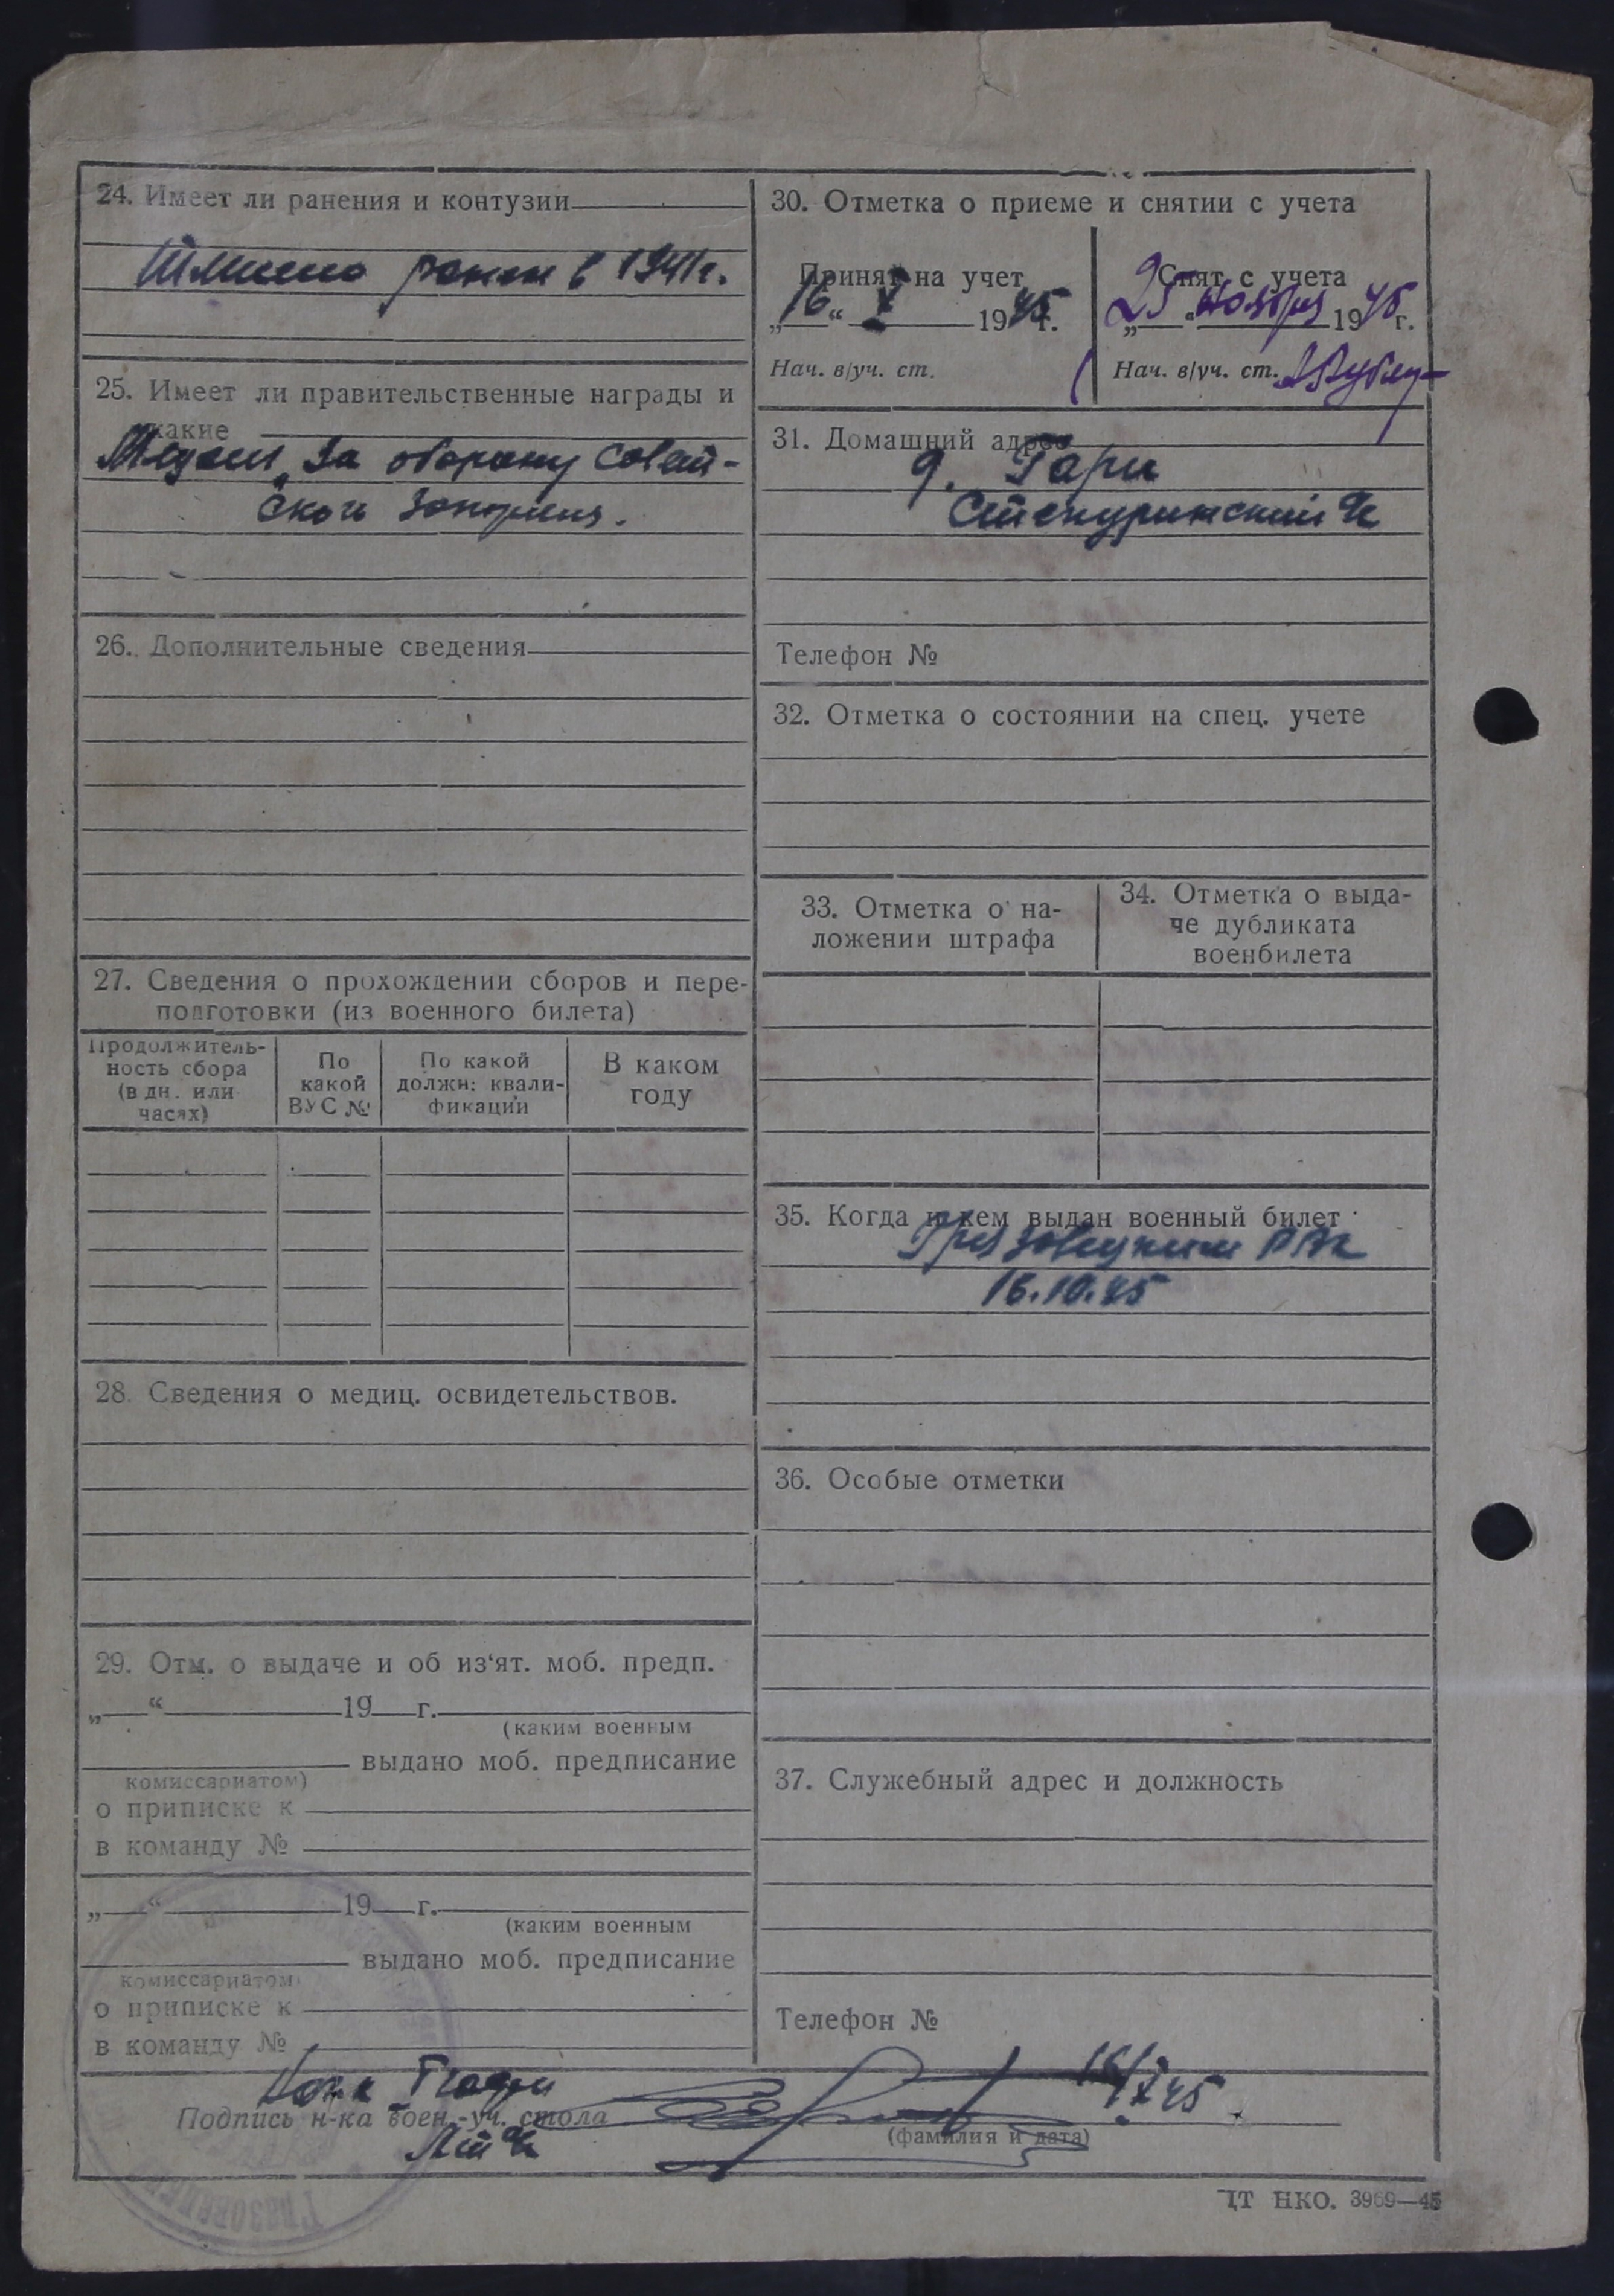 24. Имеет ли ранения и контузии
ранен в 1941г.
25. Имеет ли правительственные награды и
какие
Медаль „За оборону Совет-
ского Заполярья.
26. Дополнительные сведения
27. Сведения о прохождении сборов и пере-
подготовки (из военного билета)
Продолжитель-
ность сбора
(в дн. или
часах)
По
какой
ВУС №
По какой
должн: квали-
фикации
В каком
году
28. Сведения о медиц. освидетельствов.
29. Отм. о выдаче и об из‘ят. моб. предп.
„ “ 19 г.
(каким военным
выдано моб. предписание
комиссариатом)
о приписке к
в команду №
„ “ 19 г.
(каким военным
выдано моб. предписание
комиссариатом)
о приписке к
в команду №
30. Отметка о приеме и снятии с учета
Принят на учет
„16“ X 1945г.
Нач. в/уч. ст.
Снят с учета
„25“ ноября 1945г.
Нач. в/уч. ст.
31. Домашний адрес
д. Гари
Телефон №
32. Отметка о состоянии на спец. учете
33. Отметка о на-
ложении штрафа
34. Отметка о выда-
че дубликата
военбилета
35. Когда и кем выдан военный билет
Грязовецким РВК
16.10.45
36. Особые отметки
37. Служебный адрес и должность
Телефон №
16/X 45
Подпись н-ка воен.-уч. стола
(фамилия и дата)
ЦТ НКО. 3969—45